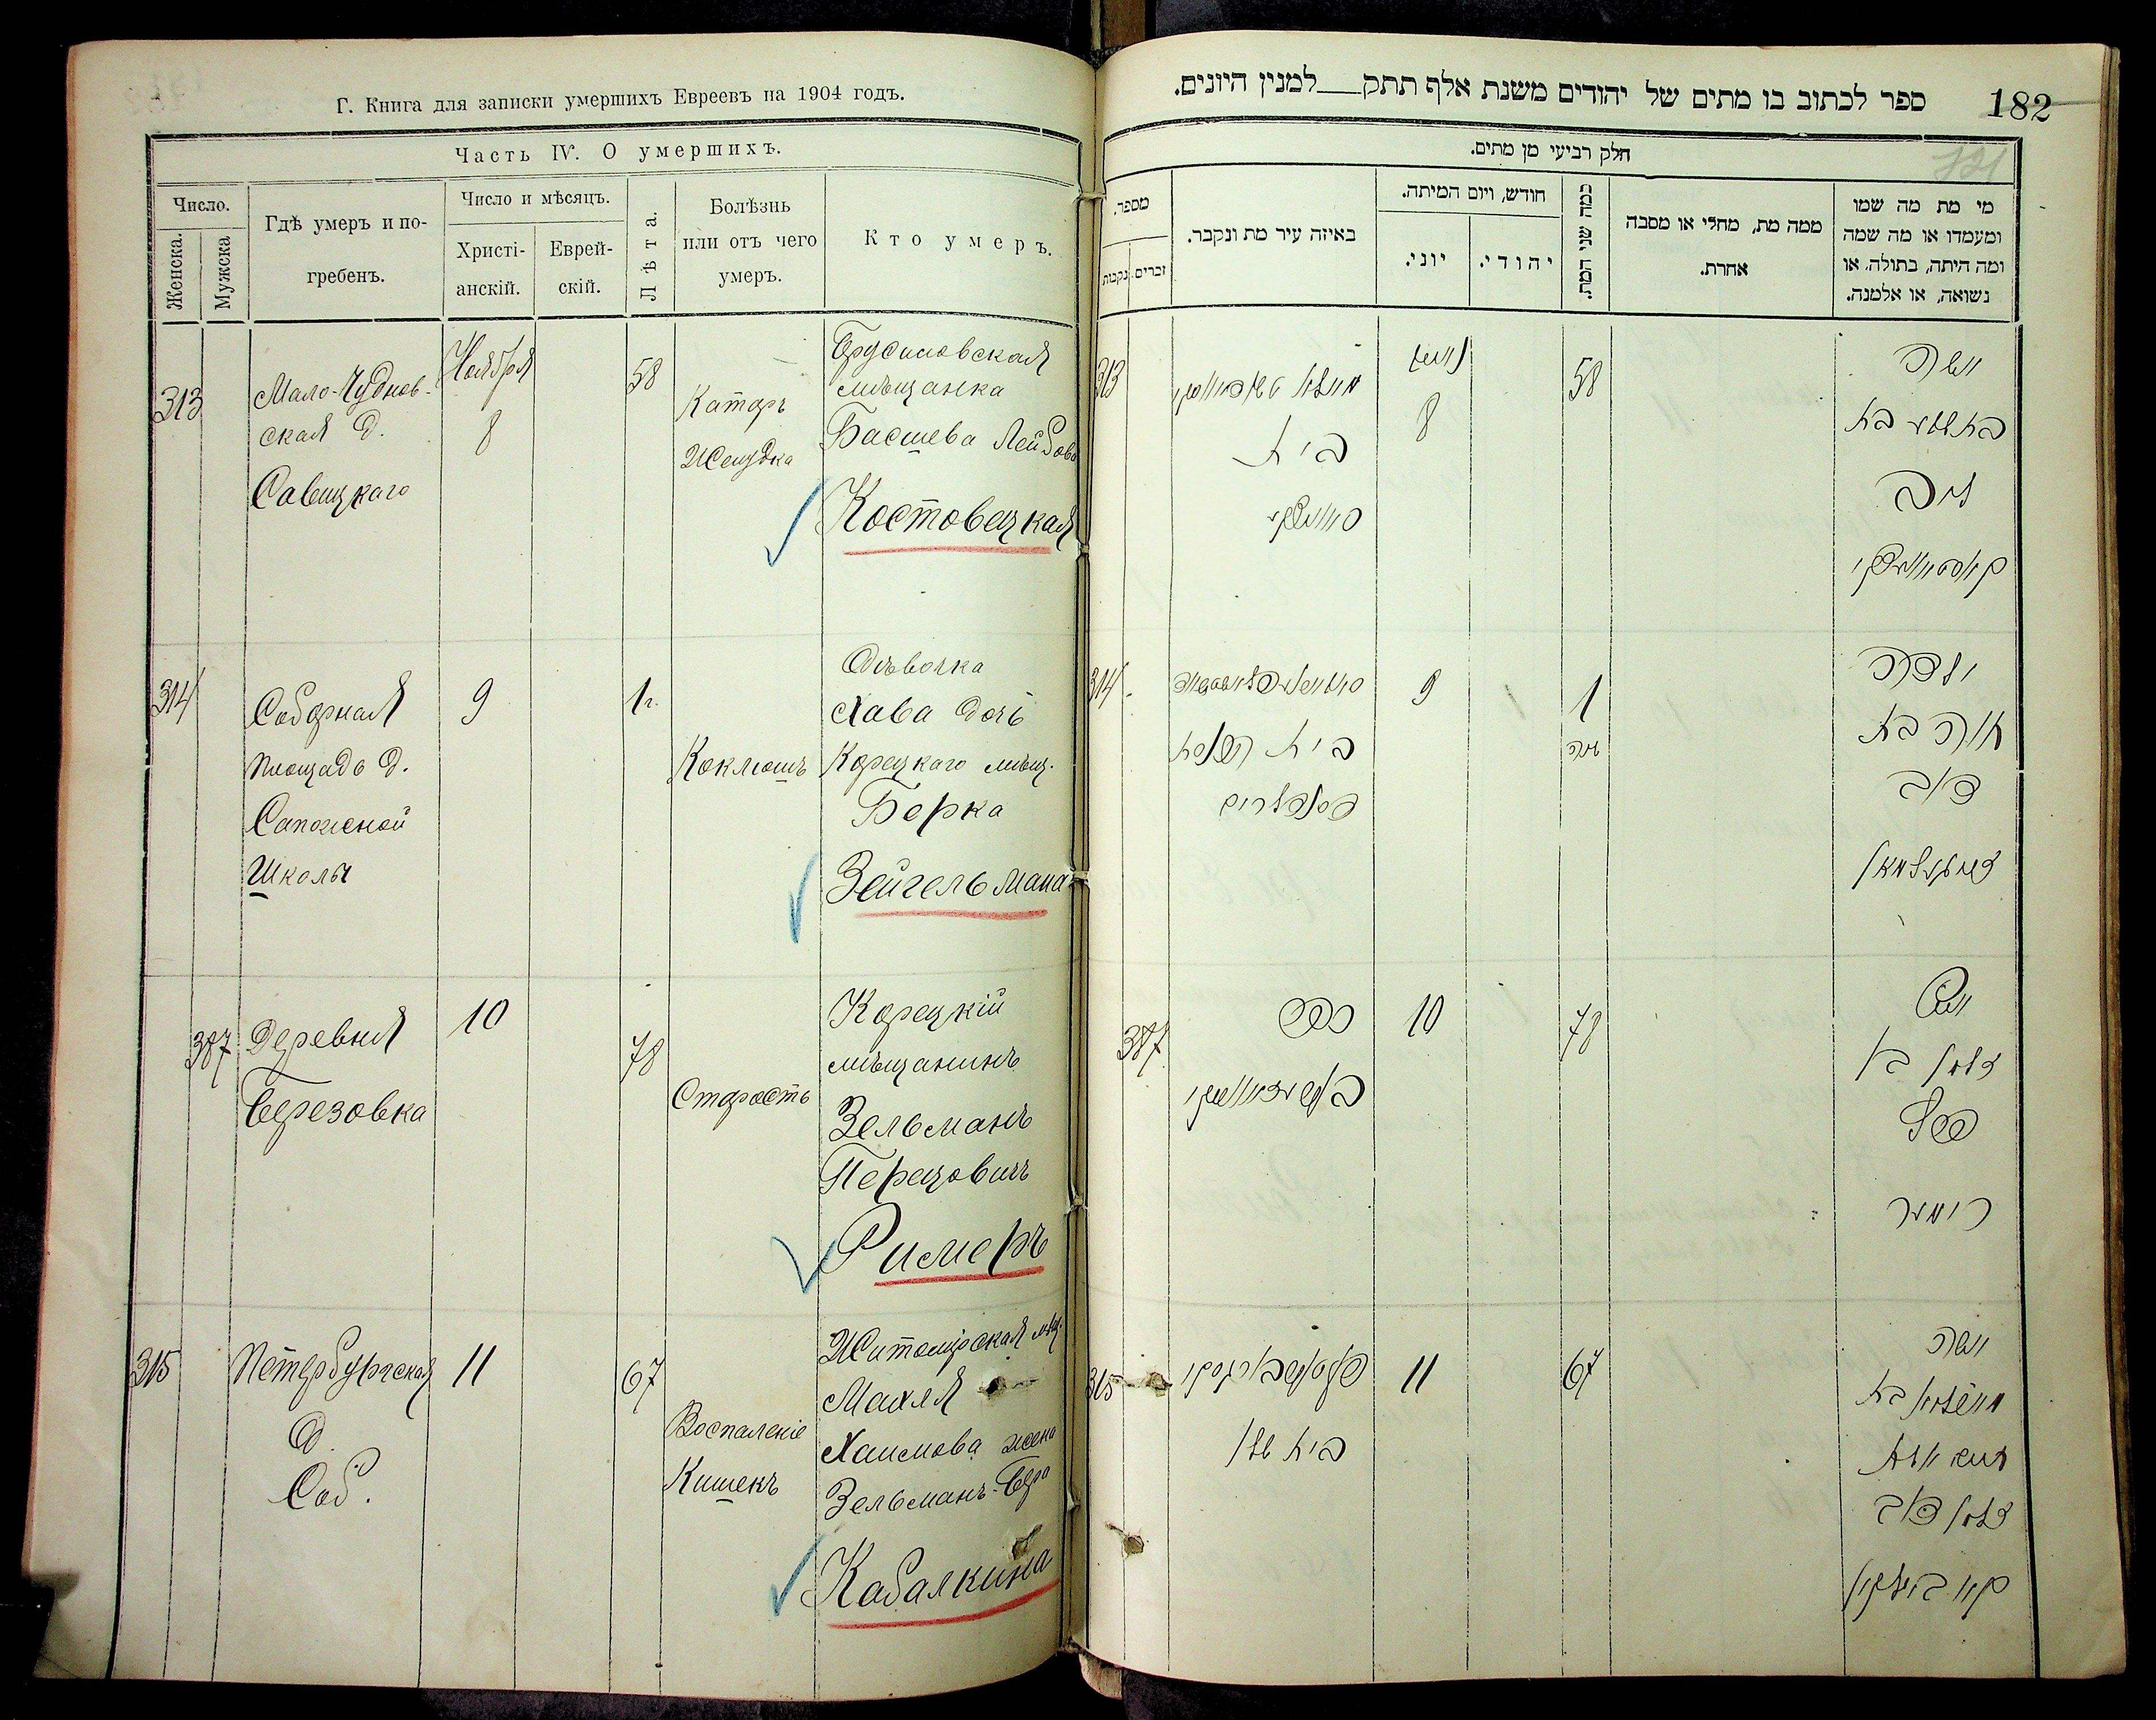 Г. Книга для записки умершихъ Евреевъ на 1904 годъ.
Часть IV. О умершихъ.
Число.
Женска.
Мужска
Гдѣ умеръ и по-
гребенъ.
Число и мѣсяцъ.
Христі-
анскій.
Еврей-
скій.
Лѣта.
Болѣзнь
или отъ чего
умеръ.
Кто умеръ.
313
Мало-Чуднов-
ская д.
Савицкаго
Ноября
8
58
Катаръ
Желудка
Брусиловская
мѣщанка
Басшева Лейбова
Костовецкая
314
Соборная
площадь д.
Сапожной
Школы
9
1 г.
Коклюшъ
Дѣвочка
Хава дочь
Корецкаго мѣщ.
Берка
Зейгельмана
387
Деревня
Березовка
10
78
Старость
Корецкій
мѣщанинъ
Зельманъ
Перецовичъ
Римеръ
315
Петербургская
д.
Соб.
11
67
Воспаленіе
Кишекъ
Житомірская мѣщ.
Махля
Хаимова жена
Зельманъ-Бера
Кабалкина
ספר לכתוב בו מתים של יהודים משנת אלף תתק___למנין היונים.
182
חלק רביעי מן מתים.
מספר.
זכרים.
נקבות
באיזה עיר מת ונקבר.
חודש, ויום המיתה.
יוני.
יהודי.
כמה שני המת.
ממה מת, מחלי או מסבה
אחרת.
מי מת מה שמו
ומעמדו או מה שמה
ומה היתה, בתולה, או
נשואה, או אלמנה.
313
בית
8
58
אשה
בת
ליב
314
9
1
שנה
בית
ילדה
חוה בת
בער
387
כפר
10
78
איש
זלמן בן
פרץ
רימער
315
11
67
אשה
בת
חיים אשת
זלמן בער